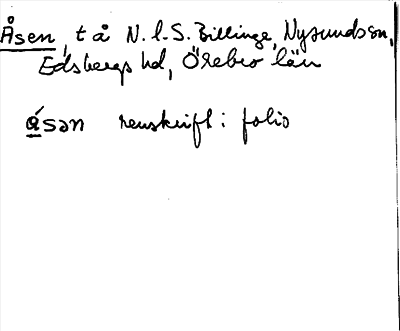 Åsen, t å N.l.S. Billinge, Nysunds sn,
Edsbergs hd, Örebro län
åsən renskrift: folio